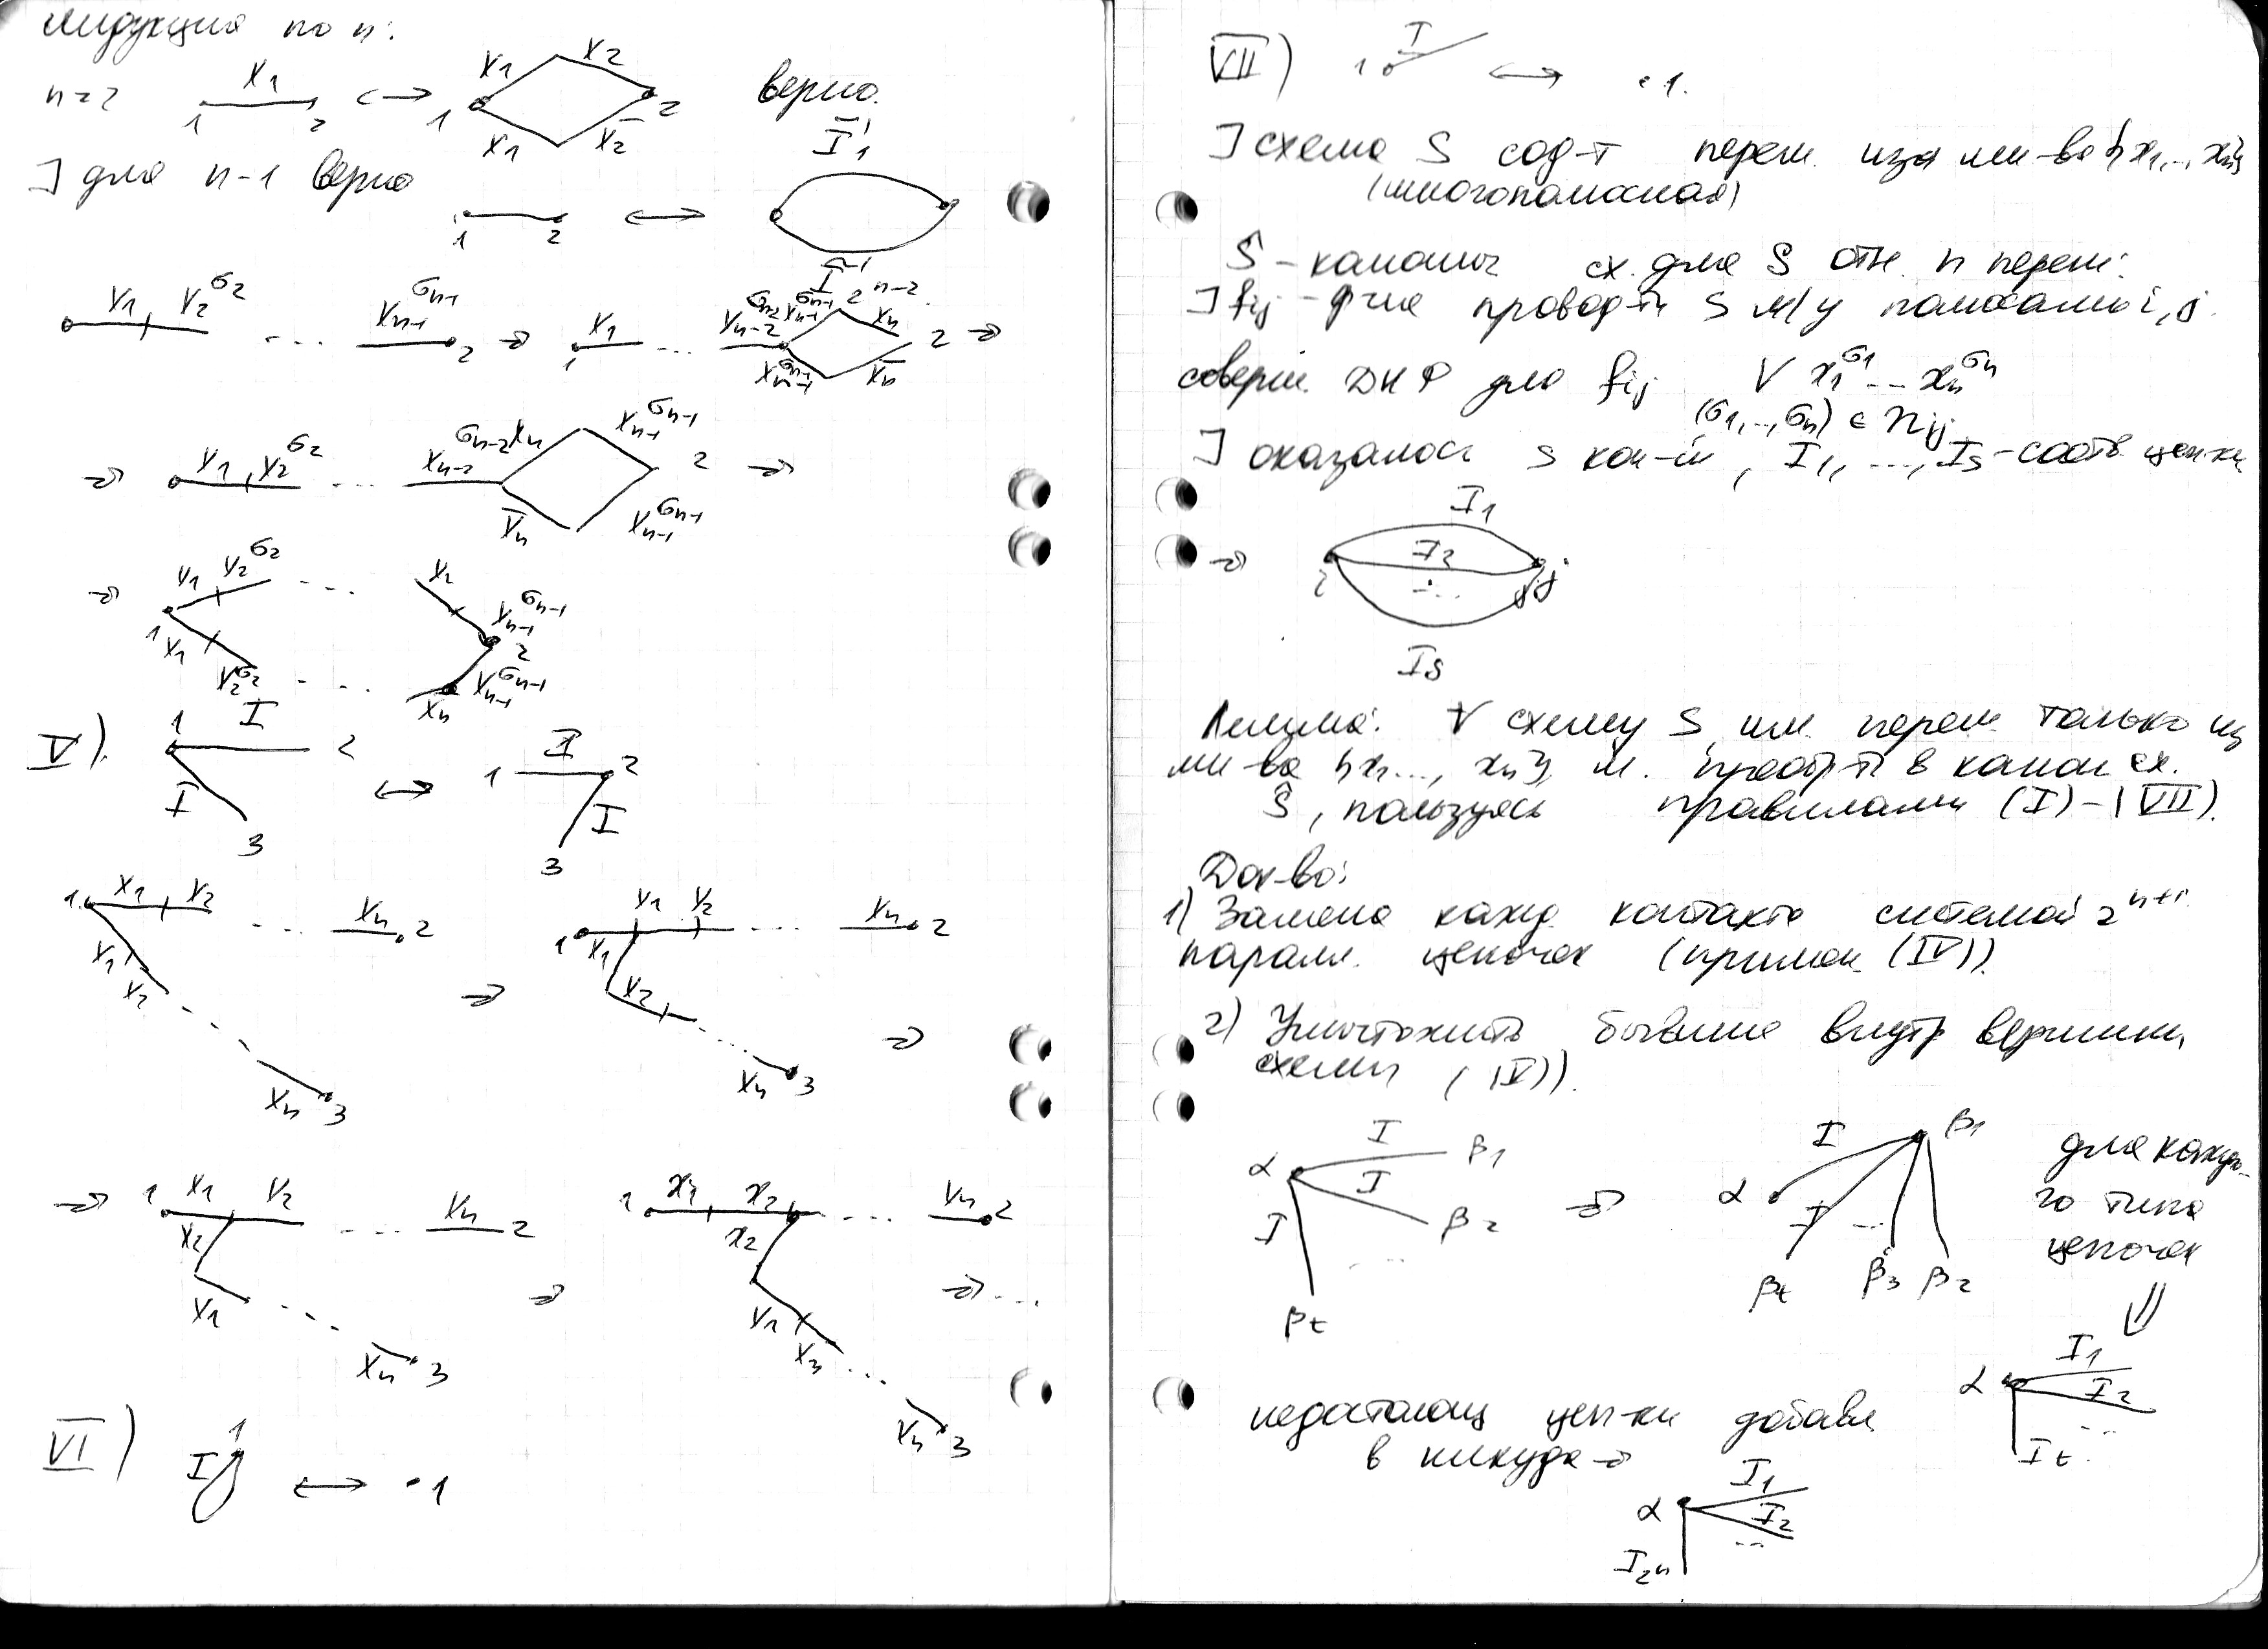 индукция по n:
n=2 x₁ 1 2 ↔ 1 x₁ x₂ x₁ x̄₂ 2 верно.
] для n-1 верно
1 2 ↔ Ī'₁ Ī'₂ⁿ⁻²
x₁ x₂^σ₂ ... xₙ₋₁^σₙ₋₁ 2 ⇒ 1 x₁ ... xₙ₋₂^σₙ₋₂ xₙ₋₁^σₙ₋₁ xₙ xₙ₋₁^σₙ₋₁ x̄ₙ 2 ⇒
⇒ x₁ x₂^σ₂ ... xₙ₋₂^σₙ₋₂ xₙ xₙ₋₁^σₙ₋₁ x̄ₙ xₙ₋₁^σₙ₋₁ 2 ⇒
⇒ 1 x₁ x₂^σ₂ ... xₙ₋₁^σₙ₋₁ 2
x₁ x₂^σ₂ ... xₙ xₙ₋₁^σₙ₋₁
V). 1 I 2 I 3 ↔ 1 I 2 I 3
1 x₁ x₂ ... xₙ 2 x₁ x₂ ... xₙ 3 ⇒ 1 x₁ x₂ ... xₙ 2 x₁ x₂ ... xₙ 3 ⇒
⇒ 1 x₁ x₂ ... xₙ 2 x₂ x₁ ... xₙ 3 ⇒ 1 x₁ x₂ ... xₙ 2 x₂ x₁ x₃ ... xₙ 3 ⇒ ...
VI) I 1 ↔ ·1
VII) 1 I ↔ ·1.
] схема S сод-т перем. из мн-ва {x₁,..,xₙ}
(многополюсная)
Ŝ - канонич сх. для S отн. n перем.
] fᵢⱼ - ф-ция провод-ти S м/у полюсами i, j.
соверш. ДНФ для fᵢⱼ ∨ x₁^σ₁ ... xₙ^σₙ
(σ₁,..,σₙ) ∈ Nᵢⱼ
] оказалось s кон-й, I₁, ..., Iₛ - соотв. цеп-ки
⇒ i I₁ I₂ ... Iₛ j
Лемма: ∀ схему S, им. перем. только из
мн-ва {x₁..., xₙ}, м. преобр-ть в канон сх.
Ŝ, пользуясь правилами (I)-(VII).
Док-во:
1) Замена кажд. контакта системой 2ⁿ⁺¹
паралл. цепочек (примен. (IV)).
2) Уничтожить бывшие внутр вершины
схемы (V)).
α I β₁ I β₂ ... I βₜ ⇒ α I β₁ I βₜ ... β₃ β₂ для каждо-
го типа
цепочек
⇓
α I₁ I₂ ... Iₜ.
недостающ цеп-ки добавл
в никуда ⇒
α I₁ I₂ ... I₂ⁿ